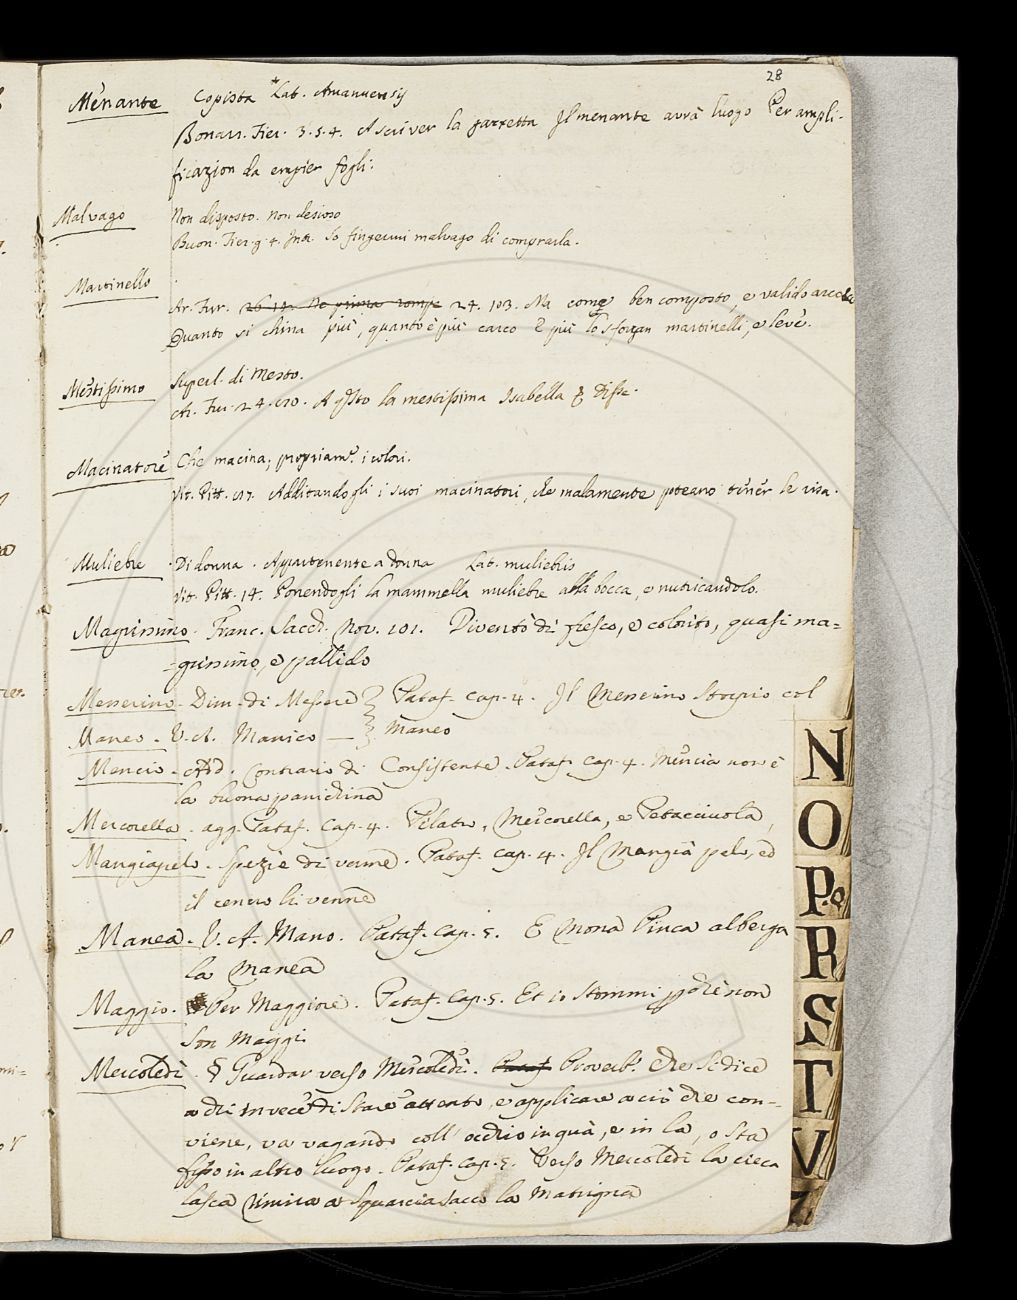 28
Menante Copista Lat. Amanuensis
Bonarr. Fier. 3. 5. 4. A scriver la gazzetta Il menante avrà luogo Per ampli-
ficazion da empier fogli.
Malvago Non disposto. non desioso
Buon. Fier. g. 4. Int. Io fingermi malvago di comprarla.
Martinello
Ar. Fur. 24. 103. Ma come ben composto, e valido arco
Quanto si china più, quanto è più carco E più lo sforzan martinelli, e leve.
Mestissimo Superl. di Mesto.
Ar. Fur. 24. A qsto la mestissima Isabella Disse.
Macinatore Che macina, propriamte. i colori.
Vit. Pitt. Additandogli i suoi macinatori, che malamente poteano tener le risa.
Muliebre Di donna. Appartenente a donna Lat. muliebris
Vit. Pitt. 14. Ponendogli la mammella muliebre alla bocca, e nutricandolo.
Magrissimo. Franc. Sacch. Nov. 101. Diventò di fresco, e colorito, quasi ma=
=grissimo, e pallido
Messerino. Dim. di Messere Pataf. cap. 4. Il Messerino storpio col
Maneo. V. A. Manico Maneo
Mencio. Add. Contrario di Consistente. Pataf. Cap. 4. Mencia non è
la buona panichina
Mercorella. agg. Pataf. Cap. 4. Pilatro, Mercorella, e Petacciuola,
Mangiapelo. Spezie di verme. Pataf. cap. 4. Il Mangia pelo, ed
il venne
Manea. V. A. Mano. Pataf. Cap. 5. E Mona Pinca alberga
la Manea
Maggio. Per Maggiore. Pataf. Cap. 5. Et io stommi pchè non
son Maggi
Mercoledì. § Guardar verso Mercoledì. Pataf Proverb. Che si dice
a chi invece di stare attento, e applicare a ciò che con-
viene, va vagando coll' occhio in quà, e in là, o sta
fisso in altro luogo. Pataf. Cap. 5. Verso Mercoledì la cieca
lasca rimira a squarciasacco la Matrigna
N
O
P.Q
R
S
T
V
Z